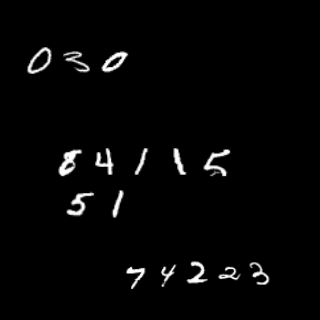 030
84115
51
74223